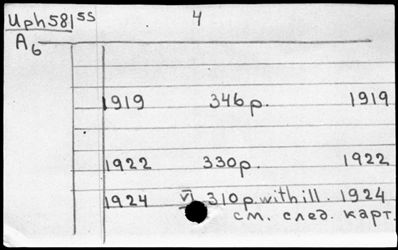 Uph581 55 4
A6
1919 346 p. 1919
1922 330 p. 1922
1924 VI 310 p. with ill. 1924
см. след. карт.